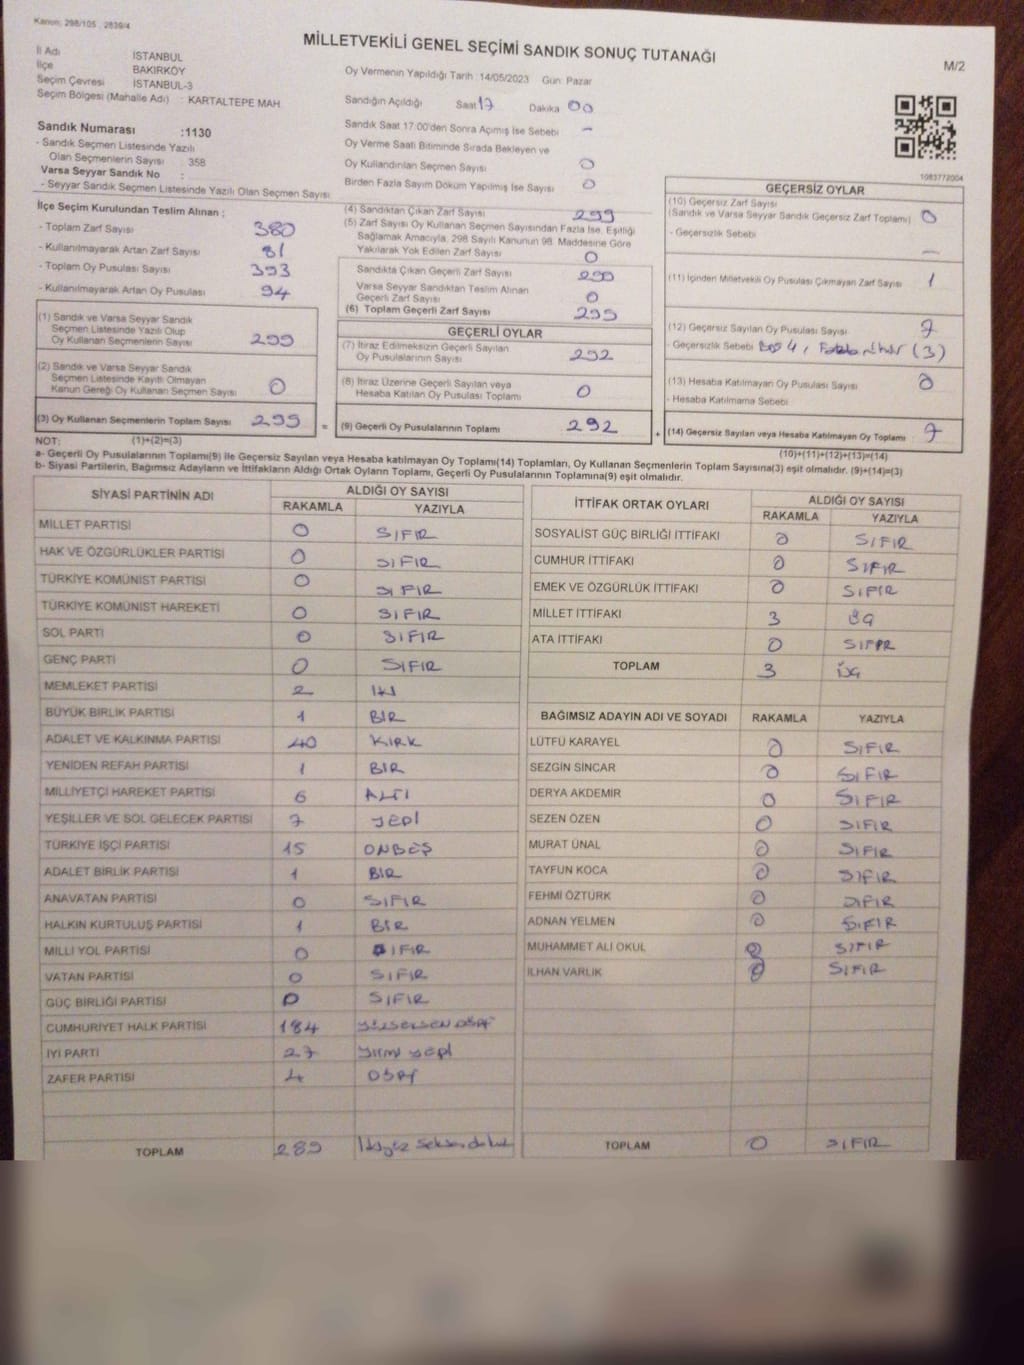 Kanun: 298/105 , 2839/4
MİLLETVEKİLİ GENEL SEÇİMİ SANDIK SONUÇ TUTANAĞI
M/2
İl Adı : İSTANBUL
İlçe : BAKIRKÖY
Seçim Çevresi : İSTANBUL-3
Seçim Bölgesi (Mahalle Adı) : KARTALTEPE MAH
Sandık Numarası :1130
- Sandık Seçmen Listesinde Yazılı
Olan Seçmenlerin Sayısı : 358
Varsa Seyyar Sandık No :
- Seyyar Sandık Seçmen Listesinde Yazılı Olan Seçmen Sayısı
Oy Vermenin Yapıldığı Tarih : 14/05/2023 Gün: Pazar
Sandığın Açıldığı Saat 17 Dakika 00
Sandık Saat 17:00'den Sonra Açımış İse Sebebi -
Oy Verme Saati Bitiminde Sırada Bekleyen ve
Oy Kullandırılan Seçmen Sayısı 0
Birden Fazla Sayım Döküm Yapılmış İse Sayısı 0
1083772004
İlçe Seçim Kurulundan Teslim Alınan :
- Toplam Zarf Sayısı 380
- Kullanılmayarak Artan Zarf Sayısı 81
- Toplam Oy Pusulası Sayısı 393
- Kullanılmayarak Artan Oy Pusulası 94
(1) Sandık ve Varsa Seyyar Sandık
Seçmen Listesinde Yazılı Olup
Oy Kullanan Seçmenlerin Sayısı 299
(2) Sandık ve Varsa Seyyar Sandık
Seçmen Listesinde Kayıtlı Olmayan
Kanun Gereği Oy Kullanan Seçmen Sayısı 0
(3) Oy Kullanan Seçmenlerin Toplam Sayısı 299 =
(4) Sandıktan Çıkan Zarf Sayısı 299
(5) Zarf Sayısı Oy Kullanan Seçmen Sayısından Fazla İse, Eşitliği
Sağlamak Amacıyla, 298 Sayılı Kanunun 98. Maddesine Göre
Yakılarak Yok Edilen Zarf Sayısı 0
Sandıkta Çıkan Geçerli Zarf Sayısı
Varsa Seyyar Sandıktan Teslim Alınan
Geçerli Zarf Sayısı 0
(6) Toplam Geçerli Zarf Sayısı 299
GEÇERLİ OYLAR
(7) İtiraz Edilmeksizin Geçerli Sayılan
Oy Pusulalarının Sayısı 292
(8) İtiraz Üzerine Geçerli Sayılan veya
Hesaba Katılan Oy Pusulası Toplamı 0
(9) Geçerli Oy Pusulalarının Toplamı 292 +
GEÇERSİZ OYLAR
(10) Geçersiz Zarf Sayısı
(Sandık ve Varsa Seyyar Sandık Geçersiz Zarf Toplamı) 0
- Geçersizlik Sebebi -
(11) İçinden Milletvekili Oy Pusulası Çıkmayan Zarf Sayısı 1
(12) Geçersiz Sayılan Oy Pusulası Sayısı 7
- Geçersizlik Sebebi Boş 4, (3)
(13) Hesaba Katılmayan Oy Pusulası Sayısı 0
- Hesaba Katılmama Sebebi
(14) Geçersiz Sayılan veya Hesaba Katılmayan Oy Toplamı 7
NOT: (1)+(2)=(3) (10)+(11)+(12)+(13)=(14)
a- Geçerli Oy Pusulalarının Toplamı(9) ile Geçersiz Sayılan veya Hesaba katılmayan Oy Toplamı(14) Toplamları, Oy Kullanan Seçmenlerin Toplam Sayısına(3) eşit olmalıdır. (9)+(14)=(3)
b- Siyasi Partilerin, Bağımsız Adayların ve İttifakların Aldığı Ortak Oyların Toplamı, Geçerli Oy Pusulalarının Toplamına(9) eşit olmalıdır.
SİYASİ PARTİNİN ADI ALDIĞI OY SAYISI
RAKAMLA YAZIYLA
MİLLET PARTİSİ 0 SIFIR
HAK VE ÖZGÜRLÜKLER PARTİSİ 0 SIFIR
TÜRKİYE KOMÜNİST PARTİSİ 0 SIFIR
TÜRKİYE KOMÜNİST HAREKETİ 0 SIFIR
SOL PARTİ 0 SIFIR
GENÇ PARTİ 0 SIFIR
MEMLEKET PARTİSİ 2 İKİ
BÜYÜK BİRLİK PARTİSİ 1 BİR
ADALET VE KALKINMA PARTİSİ 40 KIRK
YENİDEN REFAH PARTİSİ 1 BİR
MİLLİYETÇİ HAREKET PARTİSİ 6 ALTI
YEŞİLLER VE SOL GELECEK PARTİSİ 7 YEDİ
TÜRKİYE İŞÇİ PARTİSİ 15 ONBEŞ
ADALET BİRLİK PARTİSİ 1 BİR
ANAVATAN PARTİSİ 0 SIFIR
HALKIN KURTULUŞ PARTİSİ 1 BİR
MİLLİ YOL PARTİSİ 0 SIFIR
VATAN PARTİSİ 0 SIFIR
GÜÇ BİRLİĞİ PARTİSİ 0 SIFIR
CUMHURİYET HALK PARTİSİ 184 YÜZSEKSEN DÖRT
İYİ PARTİ 27 YİRMİ YEDİ
ZAFER PARTİSİ 4 DÖRT
TOPLAM 289 İkiyüz Seksen dokuz
İTTİFAK ORTAK OYLARI ALDIĞI OY SAYISI
RAKAMLA YAZIYLA
SOSYALİST GÜÇ BİRLİĞİ İTTİFAKI 0 SIFIR
CUMHUR İTTİFAKI 0 SIFIR
EMEK VE ÖZGÜRLÜK İTTİFAKI 0 SIFIR
MİLLET İTTİFAKI 3 ÜÇ
ATA İTTİFAKI 0 SIFIR
TOPLAM 3 ÜÇ
BAĞIMSIZ ADAYIN ADI VE SOYADI RAKAMLA YAZIYLA
LÜTFÜ KARAYEL 0 SIFIR
SEZGİN SİNCAR 0 SIFIR
DERYA AKDEMİR 0 SIFIR
SEZEN ÖZEN 0 SIFIR
MURAT ÜNAL 0 SIFIR
TAYFUN KOCA 0 SIFIR
FEHMİ ÖZTÜRK 0 SIFIR
ADNAN YELMEN 0 SIFIR
MUHAMMET ALİ OKUL 0 SIFIR
İLHAN VARLIK 0 SIFIR
TOPLAM 0 SIFIR